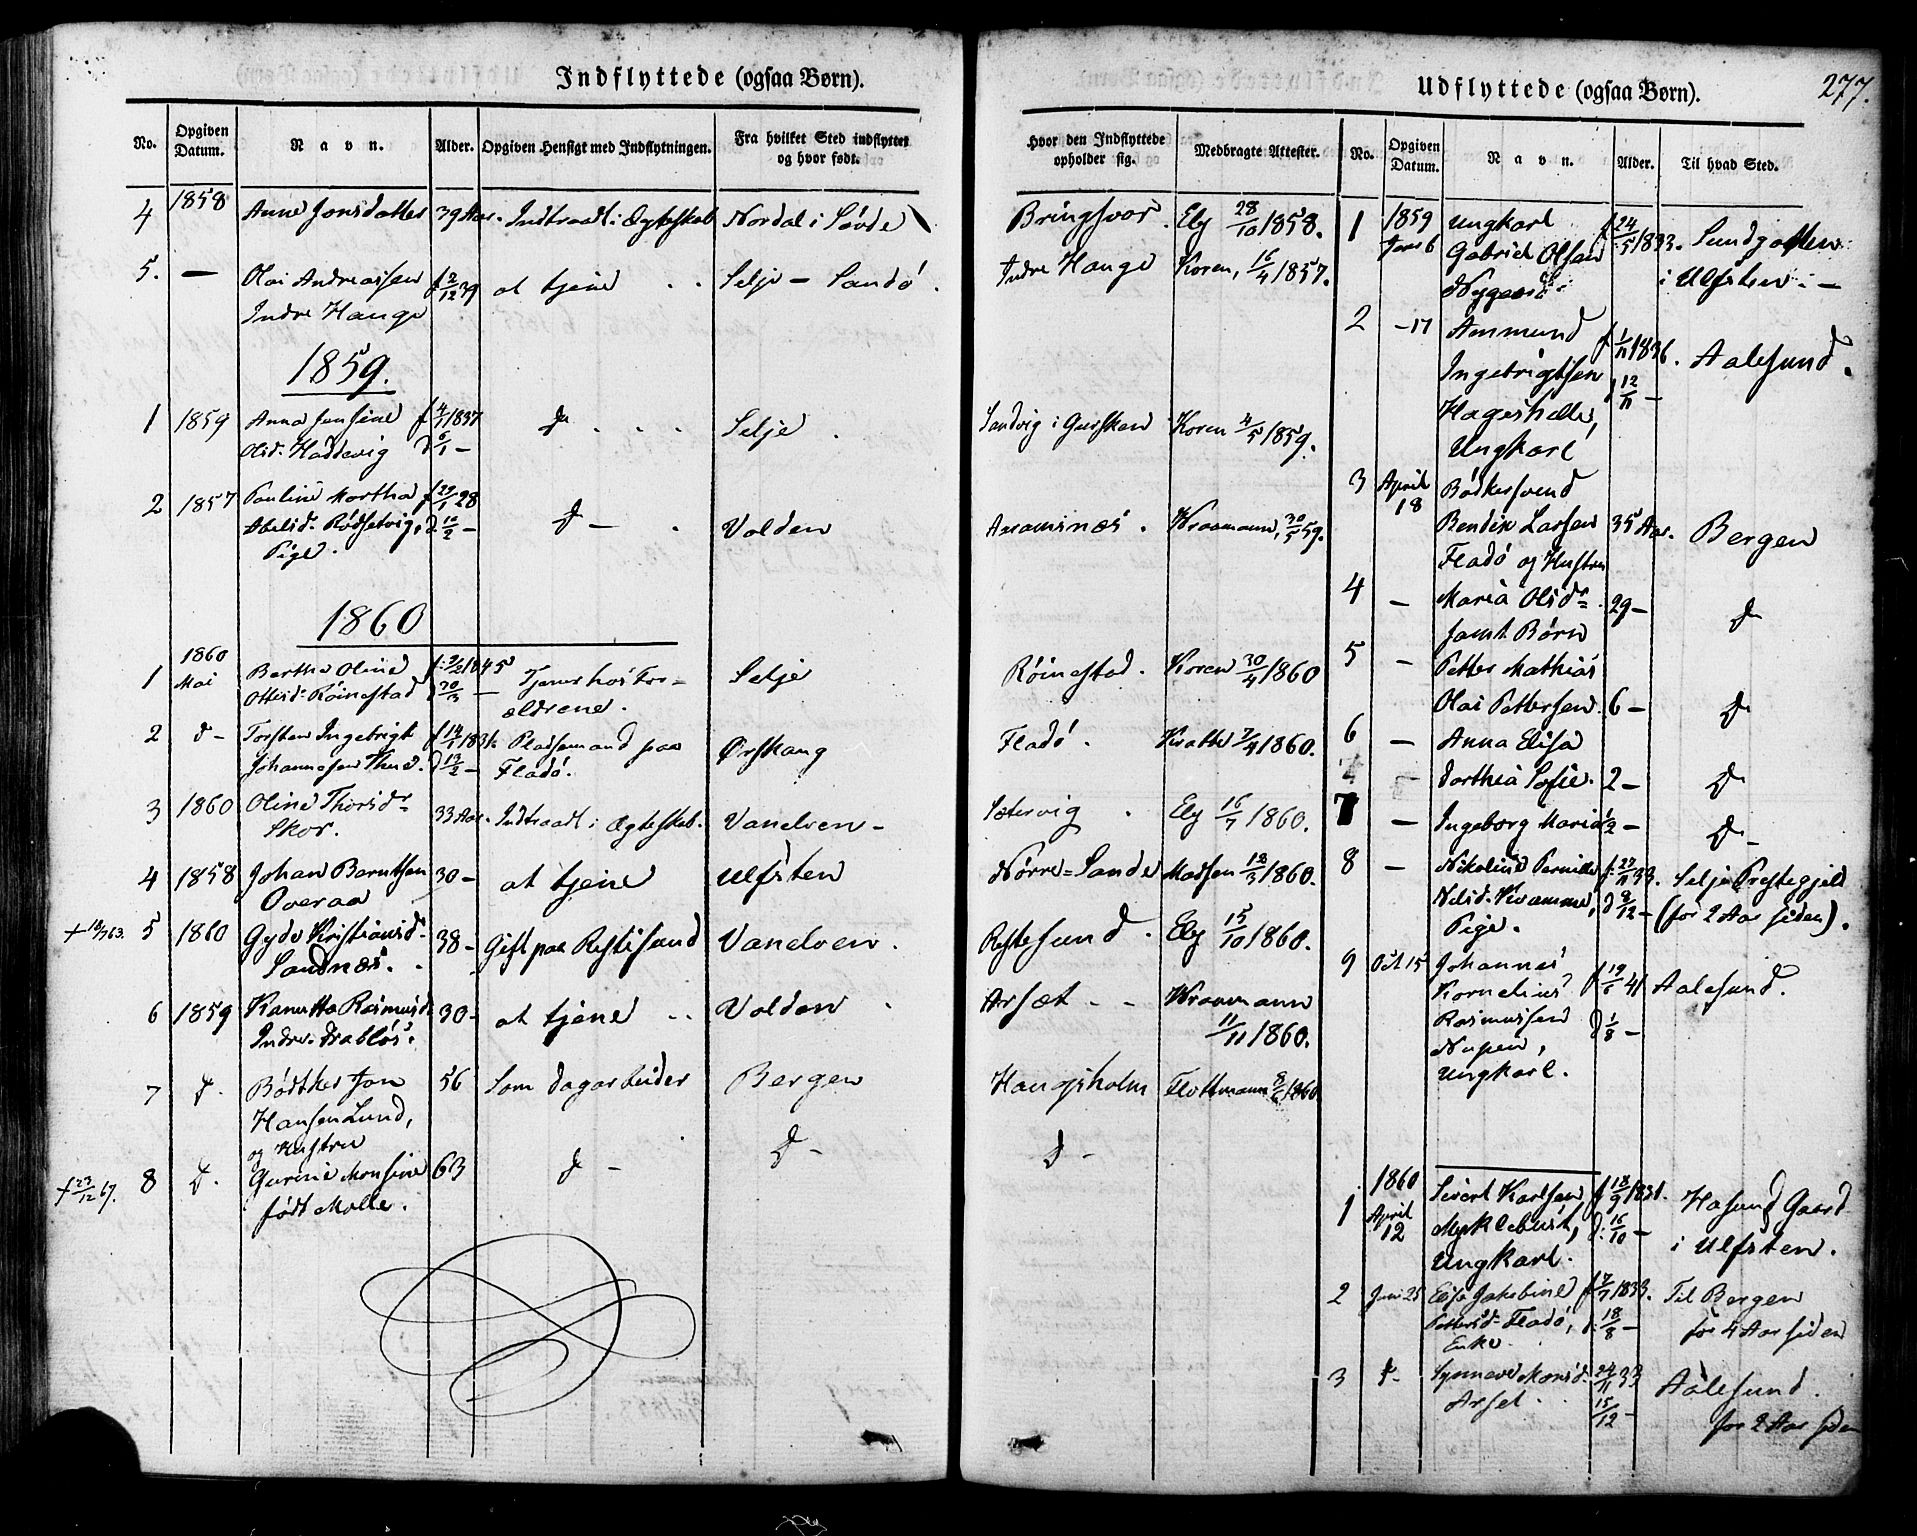 Indflyttede (ogsaa Børn).
No. Opgiven Datum. Navn. Alder. Opgiven Hensigt med Indflytningen. Fra hvilket Sted indflyttet og hvor født.
4 1858 Anne Jonsdatter 39 Aar. Indtraadt i Ægteskab Nordal i Søvde
5. — Olai Andreassen f 2/12 39 at tjene Selje — Sandö.
Indre Hauge
1859.
1 1859 Anna Jensine f 4/1 1837 do Selje
Olsd. Haddevig d 6/1 —
2 1857 Pauline Martha f 29/1 28 do — Volden
Abelsd. Rödsetvig, d. 10/2 —
Pige.
1860
1 1860 Mai Bertha Oline f. 9/2 1845 Tjener hos For- Selje
Ottesd. Röinestad d 30/3 — ældrene.
2 d — Torsten Ingebrigt f 14/1 1831. Pladsemand paa Ørskaug
Johannesen Thue. d 13/2 — Fladö.
3 1860 Oline Thorsd. 33 Aar. Indtraadt i Ægteskab. Vanelven —
Skor.
4 1858 Johan Berntsen 30 — at tjene Ulfsten
Overaa
+ 18/7 63. 5 1860 Gyde Kristiansd. 38 — Gift paa Restesund Vanelven.
Sandnæs.
6 1859 Kanutta Rasmusd. 30 — at tjene Volden
Indre-Drabløs.
7 d. Bødtker Jon 56 Som dagarbeider Bergen
Hansen Lund,
og Hustru
+ 23/12 67. 8 d. Gurine Monsine 63 d — d —
født Molle.
Hvor den Indflyttede opholder sig. Medbragte Attester.
Bringsvor. Ely 28/10 1858.
Indre Hauge Koren, 16/4 1857.
Sandvig i Gursken Koren 4/5 1859.
Aaramsnæs. Kraamann, 30/5 59.
Röinestad. Koren 30/4 1860
Fladö. Krabbe 7/4 1860.
Sætervig Ely 16/7 1860.
Nörre-Sande Madsen 13/3 1860.
Restesund. Ely 15/10 1860.
Arsæt Kraamann
11/11 1860.
Haugsholm Flottmann 8/6 1860
d —
Udflyttede (ogsaa Børn). 277.
No. Opgiven Datum. Navn. Alder. Til hvad Sted.
1 1859 Ungkarl f 24/5 1833. Sundgotten
Jan 6 Gabriel Olsen i Ulfsten. —
Nygaard
2 — 17 Ammund f 1/11 1836. Aalesund.
Ingebrigtsen d 12/11 —
Hageskelle,
Ungkarl
3 April Bödkersvend
18 Bendix Larsen 35 Aar. Bergen
Fladö og Hustru
4 — Maria Olsd. 29 — d
samt Børn
5 — Petter Mathias
Olai Pettersen. 6 — d
6 — Anna Elisa
— Dorthea Sofie. 2 — d
7 — Ingeborg Maria 1/2 — d —
8 — Nikoline Pernille f. 27/11 33. Selje Prestegjeld
Nilsd. Kvamme, d 8/12 — (for 2 Aar siden).
Pige.
9 Oct 15 Johannes f 19/6 41 Aalesund.
Kornelius
Rasmussen d 1/8 —
Nupen,
Ungkarl.
1860
1 April Sivert Karlsen f 18/9 1831. Hasund Gaard
12 Myklebust, d. 16/10 — i Ulfsten.
Ungkarl.
2 Juni 25 Elise Jakobine f 7/7 1833. Til Bergen
Pettersd. Fladö, d. 18/8 — for 4 Aar siden
Enke.
3 d — Synneve Monsd. 24/11 33 Aalesund.
Arset 15/12 — for 2 Aar siden